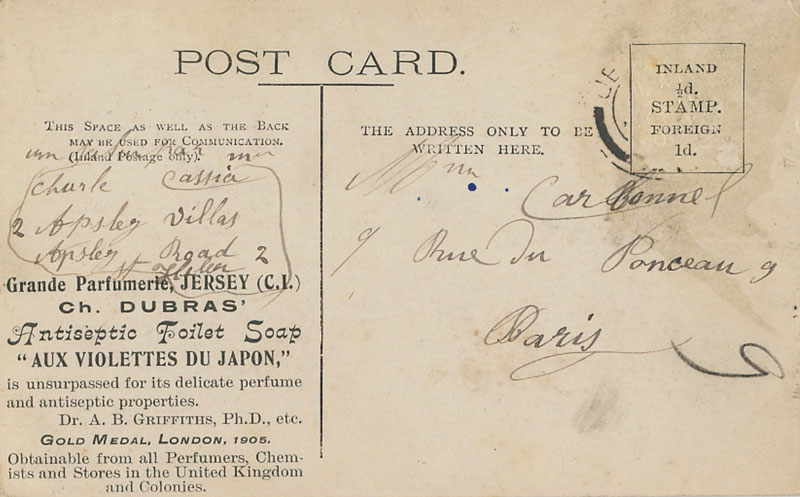 POST CARD.
THIS SPACE AS WELL AS THE BACK
MAY BE USED FOR COMMUNICATION.
(Inland Postage only).
Charle Cassia
2 Apsley Villas
Apsley Road 2
St Helier
Grande Parfumerie, JERSEY (C.I.)
Ch. DUBRAS'
Antiseptic Toilet Soap
"AUX VIOLETTES DU JAPON,"
is unsurpassed for its delicate perfume
and antiseptic properties.
Dr. A. B. GRIFFITHS, Ph.D., etc.
GOLD MEDAL, LONDON, 1905.
Obtainable from all Perfumers, Chem-
ists and Stores in the United Kingdom
and Colonies.
THE ADDRESS ONLY TO BE
WRITTEN HERE.
INLAND
½d.
STAMP.
FOREIGN
1d.
Carbonnel
9 Rue du Ponceau 9
Paris